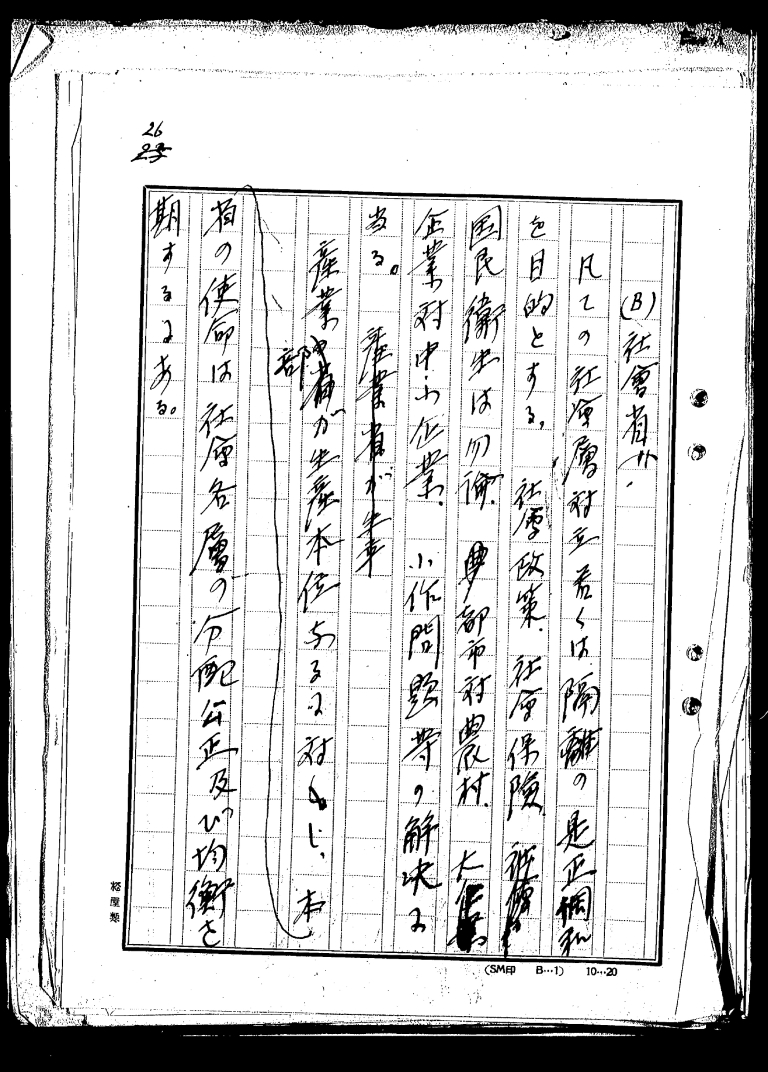 26
(B) 社會省
凡ての社会層対立若くは隔離の是正調和
を目的とする。社会政策、社会保険、
国民衛生は勿論、都市対農村、大企業
企業対中小企業、小作問題等の解決に
当る。産業省が生産
産業部門が生産本位なるに対し、本
省の使命は社会各層の分配公正及び均衡を
期するにある。
(SM印 B…1) 10…20